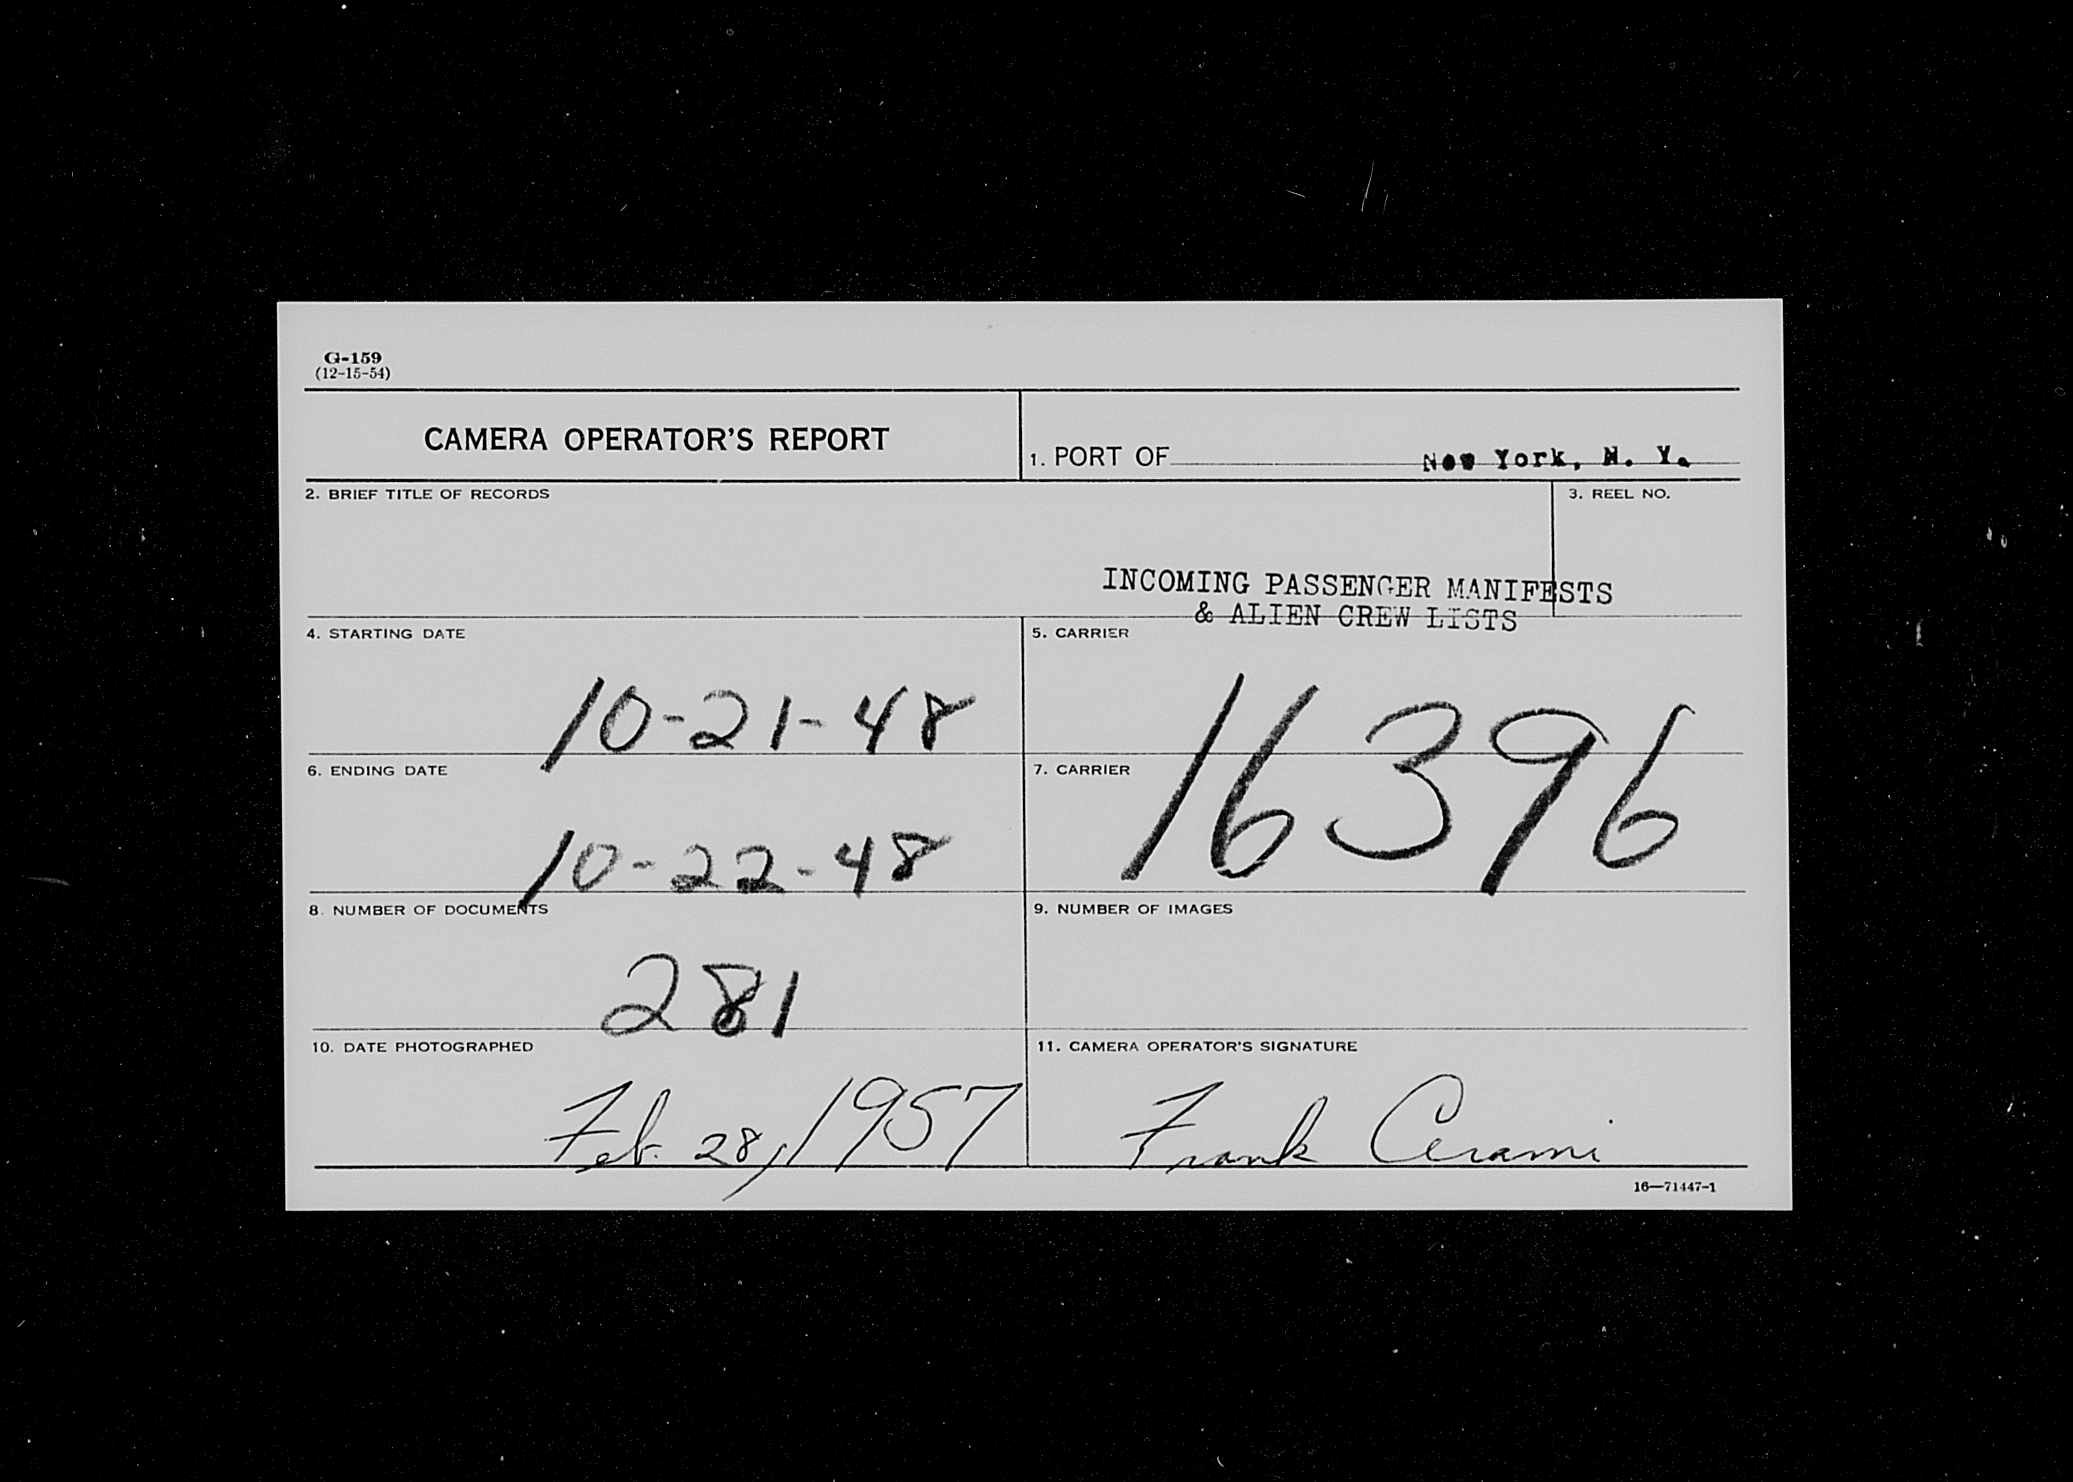 G-159
(12-15-54)
CAMERA OPERATOR'S REPORT
1. PORT OF New York, N. Y.
2. BRIEF TITLE OF RECORDS
3. REEL NO.
INCOMING PASSENGER MANIFESTS
& ALIEN CREW LISTS
4. STARTING DATE
10-21-48
5. CARRIER
16396
6. ENDING DATE
10-22-48
7. CARRIER
8. NUMBER OF DOCUMENTS
281
9. NUMBER OF IMAGES
10. DATE PHOTOGRAPHED
Feb. 28, 1957
11. CAMERA OPERATOR'S SIGNATURE
Frank Cerami
16—71447-1